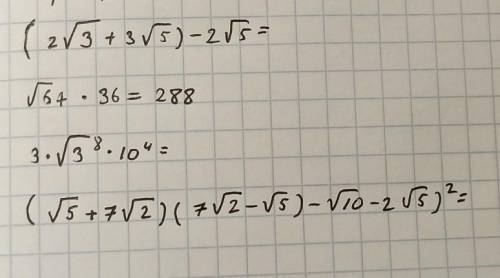 (2√3 + 3√5) - 2√5 =
√64 · 36 = 288
3 · √3⁸ · 10⁴ =
(√5 + 7√2)(7√2 - √5) - √10 - 2√5)² =